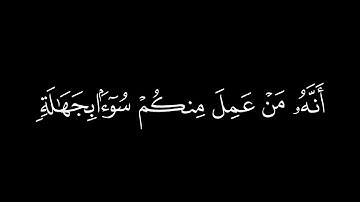 أَنَّهُۥ مَنْ عَمِلَ مِنكُمْ سُوٓءًۢا بِجَهَٰلَةٍۢ